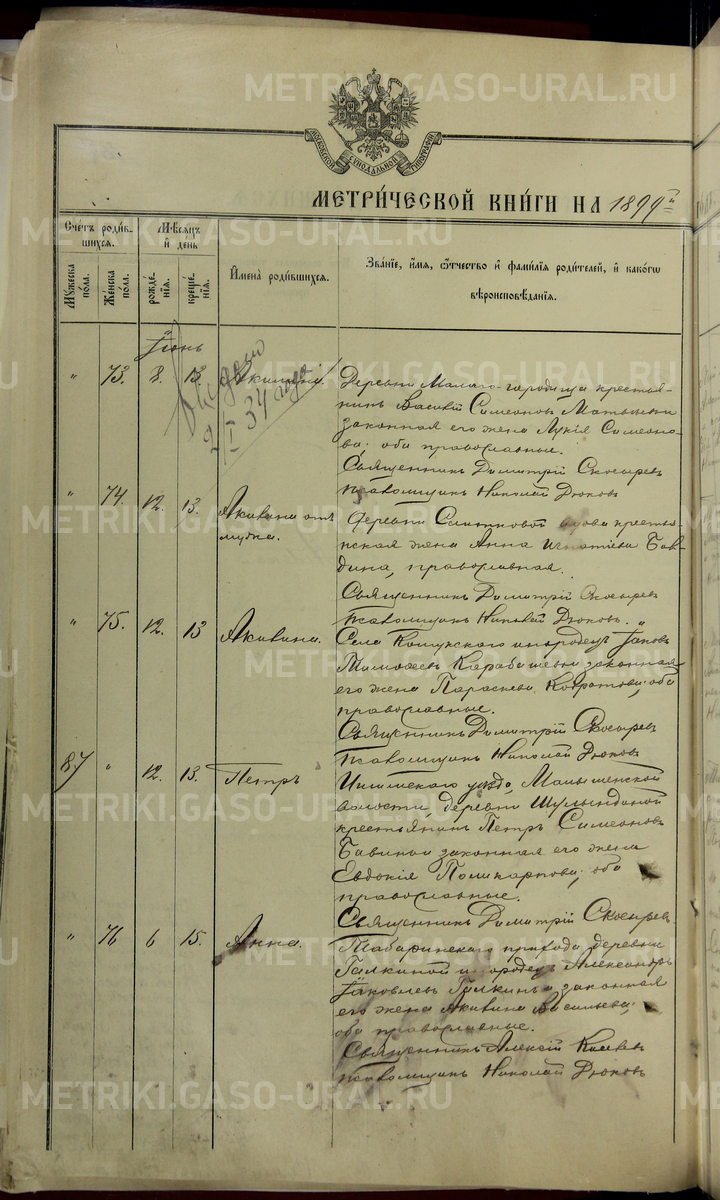 METRIKI.GASO-URAL.RU
МОСКОВСКОЙ СѴНОДАЛЬНОЙ ТИПОГРАФІИ
МЕТРИ́ЧЕСКОЙ КНИ́ГИ НА 1899й
Сче́тъ роди́вшихся.
Му́жеска по́ла.
Же́нска по́ла.
Мѣ́сяцъ и҆ де́нь
рожде́нія.
креще́нія.
И҆мена̀ роди́вшихся.
Зва́ніе, и҆́мя, ѻ҆́тчество и҆ фами́лія роди́телей, и҆ како́гѡ
вѣроисповѣ́данія.
Іюнь
" 73. 8. 13. Акилина.
Выдано
2/I 34 года
Деревни Малаго-городища крестья-
нинъ Василій Симеоновъ
законная его жена Лукія Симеоно-
ва; оба православные.
Священникъ Димитрій Скосыревъ
Псаломщикъ Николай Дюковъ
" 74. 12. 13. Акилина
Деревни вдова кресть-
янская жена Анна Игнатіева Бав-
дина, православная.
Священникъ Димитрій Скосыревъ
Псаломщикъ Николай Дюковъ. "
" 75. 12. 13 Акилина.
Села Кошукского инородецъ Іаковъ
Тимофеевъ законная
его жена Параскева оба
православные.
Священникъ Димитрій Скосыревъ
Псаломщикъ Николай Дюковъ
87 " 12. 13. Петръ
Ишимского уѣзда,
волости, деревни
крестьянинъ Петръ Симеоновъ
законная его жена
Евдокія Поликарпова; оба
православные.
Священникъ Димитрій Скосыревъ
" 76 6 15. Анна.
Табаринского прихода деревни
Галкиной инородецъ Александръ
Іаковлевъ Галкинъ и законная
его жена Акилина Васильева;
оба православные.
Священникъ Алексій
псаломщикъ Николай Дюковъ